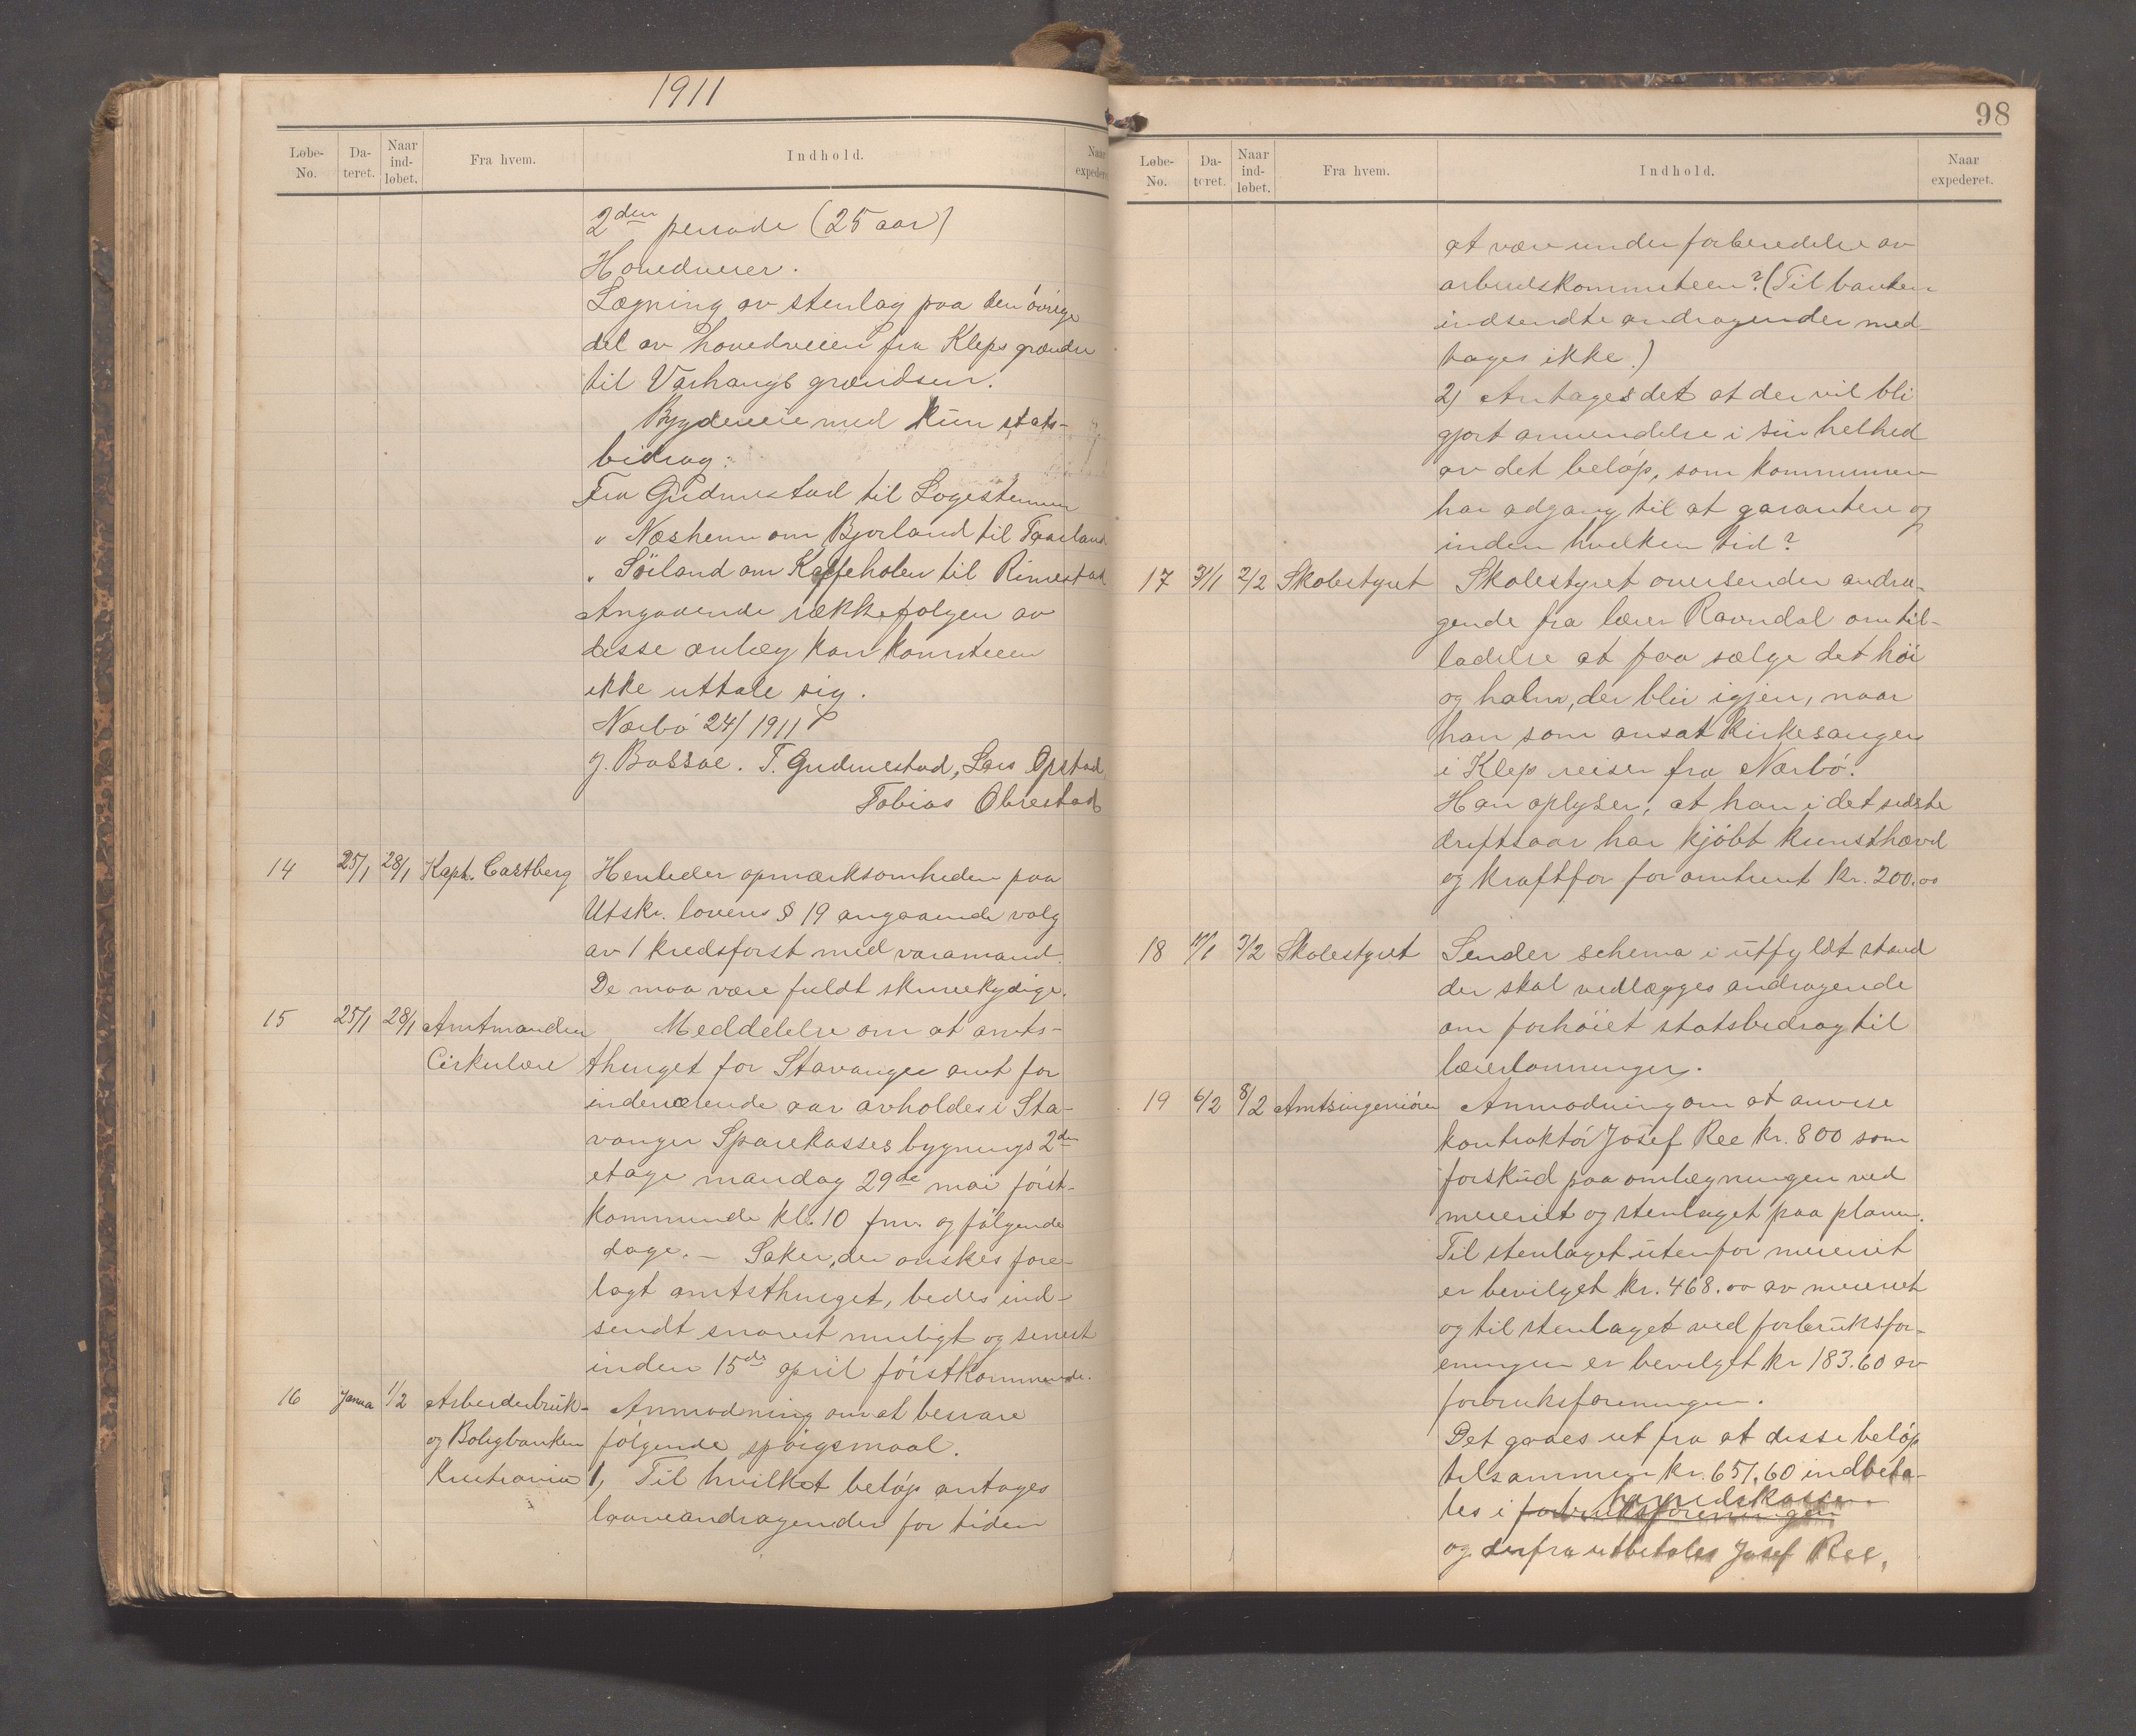 1911
Løbe-No. Da-teret. Naar ind-løbet. Fra hvem. Indhold. Naar expederet.
2den periode (25 aar)
Hovedveier.
Lægning av stenlag paa den øvrige
del av hovedveien fra Kleps grændse
til Varhaugs grændsen.
Bygdeveie med kun stats-
bidrag:
Fra Gudmestad til Logestenen
" Næsheim om Bjorland til Taarland
" Söiland om Kaffeholen til Rimestad
Angaaende rækkefølgen av
disse anlæg kan komiteen
ikke uttale sig.
Nærbö 24/1 1911
J. Bassøe. T. Gudmestad, Lars Opstad
Tobias Obrestad
14 25/1 28/1 Kapt. Castberg Henleder opmærksomheden paa
Utskr. lovens § 19 angaaende valg
av 1 kredsforst med varamand.
De maa være fuldt skrivekyndige.
15 25/1 28/1 Amtmanden Meddelelse om at amts-
Cirkulære thinget for Stavanger amt for
indeværende aar avholdes i Sta-
vanger Sparekasses bygnings 2den
etage mandag 29de mai först-
kommende kl. 10 fm. og fölgende
dage. – Saker, der önskes fore-
lagt amtsthinget, bedes ind-
sendt snarest muligt og senest
inden 15de april förstkommende.
16 Janua 1/2 Arbeiderbruk- Anmodning om at besvare
og Boligbanken fölgende spörgsmaal.
Kristiania 1, Til hvilket belöp antages
laaneandragender for tiden
98
Løbe-No. Da-teret. Naar ind-løbet. Fra hvem. Indhold. Naar expederet.
at være under forberedelse av
arbeidskommiteen? (Til banken
indsendte andragender med-
tages ikke.)
2) Antages det at der vil bli
gjort anvendelse i sin helhed
av det belöp, som kommunen
har adgang til at garantere og
inden hvilken tid?
17 31/1 2/2 Skolestyret Skolestyret oversender andra-
gende fra lærer Ravndal om til-
ladelse at faa sælge det höi
og halm, der blir igjen, naar
han som ansat kirkesanger
i Klep reiser fra Nærbö.
Han oplyser, at han i det sidste
driftsaar har kjöbt kunsthævd
og kraftfor for omtrent kr. 200.00
18 3/2 Skolestyret Sender schema i utfyldt stand
der skal vedlægges andragende
om forhöiet statsbidrag til
lærerlönninger.
19 6/2 8/2 Amtsingeniören Anmodning om at anvise
kontraktör Josef Ree kr. 800 som
forskud paa omlægningen ved
meieriet og stenlaget paa planen.
Til stenlaget utenfor meieriet
er bevilget kr. 468.00 av meieriet
og til stenlaget ved forbruksfor-
eningen er bevilget kr 183.60 av
forbruksforeningen.
Det gaaes ut fra at disse belöp
tilsammen kr. 651.60 indbeta-
herredskassen
les i forbruksforeningen
og derfra utbetales Josef Ree,